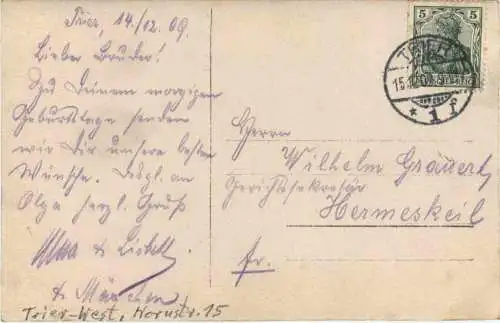 Trier, 14./12. 09.
Lieber Bruder!
Zu Deinem morgigen
Geburtstage senden
wir Dir unsere besten
Wünsche. Desgl. an
Olga herzl. Gruß
& Lisbeth
& Märchen
Trier-West, Hornstr. 15
5 5
TRIER
* 1 f
Herrn
Wilhelm Gräuert,
Gerichtssekretär
Hermeskeil
fr.